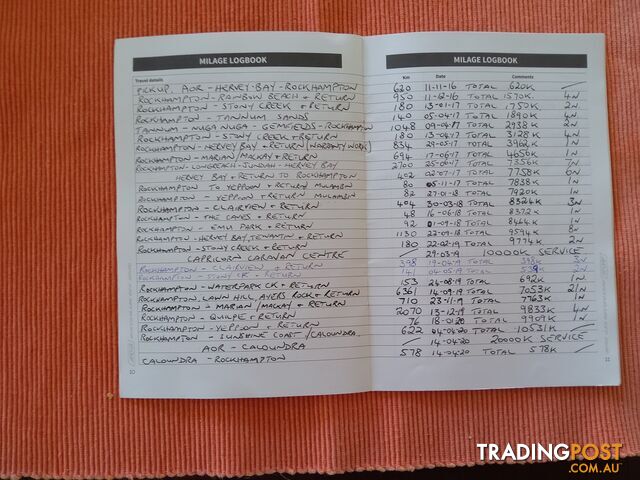 MILAGE LOGBOOK
Travel details
PICKUP, AOR - HERVEY-BAY - ROCKHAMPTON
ROCKHAMPTON - RAINBOW BEACH + RETURN
ROCKHAMPTON - STONY CREEK + RETURN
ROCKHAMPTON - TANNUM SANDS
TANNUM - NUGA NUGA - GEMFIELDS - ROCKHAMPTON
ROCKHAMPTON - STONY CREEK + RETURN
ROCKHAMPTON - HERVEY BAY + RETURN (WARRANTY WORK)
ROCKHAMPTON - MARIAN/MACKAY + RETURN
ROCKHAMPTON - LONGREACH - JUNDAH - HERVEY BAY
HERVEY BAY + RETURN TO ROCKHAMPTON
ROCKHAMPTON TO YEPPOON + RETURN MULAMBIN
ROCKHAMPTON - YEPPOON + RETURN MULAMBIN
ROCKHAMPTON - CLAIRVIEW + RETURN
ROCKHAMPTON - THE CAVES + RETURN
ROCKHAMPTON - EMU PARK + RETURN
ROCKHAMPTON - HERVEY BAY, TENANTIN + RETURN
ROCKHAMPTON - STONEY CREEK + RETURN
CAPRICORN CARAVAN CENTRE
ROCKHAMPTON - CLAIRVIEW + RETURN
ROCKHAMPTON - STONY CK + RETURN
ROCKHAMPTON - WATERPARK CK + RETURN
ROCKHAMPTON, LAWN HILL, AYERS ROCK + RETURN
ROCKHAMPTON - MARIAN/MACKAY + RETURN
ROCKHAMPTON - QUILPE + RETURN
ROCKHAMPTON - YEPPOON + RETURN
ROCKHAMPTON - SUNSHINE COAST/CALOUNDRA
AOR - CALOUNDRA
CALOUNDRA - ROCKHAMPTON
10
MILAGE LOGBOOK
Km Date Comments
620 11-11-16 TOTAL 620K
950 11-12-16 TOTAL 1570K 4N
180 13-01-17 TOTAL 1750K 2N
140 05-04-17 TOTAL 1890K 4N
1048 09-04-17 TOTAL 2938K 2N
180 13-04-17 TOTAL 3128K 4N
834 29-05-17 TOTAL 3962K 1N
694 17-06-17 TOTAL 4656K 1N
2700 25-06-17 TOTAL 7356K 7N
402 02-07-17 TOTAL 7758K 6N
80 05-11-17 TOTAL 7838K 1N
82 27-01-18 TOTAL 7920K 1N
404 30-03-18 TOTAL 8324K 3N
48 16-06-18 TOTAL 8372K 1N
92 01-09-18 TOTAL 8464K 1N
1130 22-09-18 TOTAL 9594K 8N
180 22-02-19 TOTAL 9774K 2N
29-03-19 10000K SERVICE
398 19-04-19 TOTAL 398K 3N
141 04-05-19 TOTAL 539K 2N
153 24-08-19 TOTAL 692K 1N
6361 14-09-19 TOTAL 7053K 21N
710 23-11-19 TOTAL 7763K 1N
2070 13-12-19 TOTAL 9833K 4N
76 18-01-20 TOTAL 9909K 1N
622 04-04-20 TOTAL 10531K
14-04-20 20000K SERVICE
578 14-04-20 TOTAL 578K
11
TRADINGPOST.COM.AU
Find it. Buy it. Sell it.